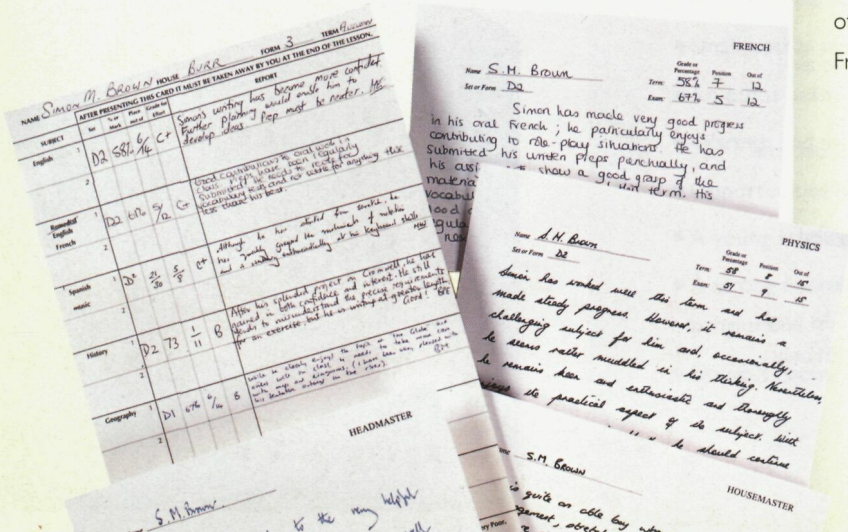 NAME Simon M. BROWN HOUSE BURR FORM 3 TERM Autumn
AFTER PRESENTING THIS CARD IT MUST BE TAKEN AWAY BY YOU AT THE END OF THE LESSON.
SUBJECT Set % or Mark Place out of Grade for Effort REPORT
English 1 D2 58% 6/14 C+
Simon's writing has become more confident.
Further planning would enable him to
develop ideas. Prep must be neater.
2
Remedial English
French 1 D2 61% 5/12 C+
Good contributions to oral work in
class. Preps have been regularly
submitted. He needs to
vocabulary tests and not settle for anything that
less than his best.
2
Spanish
music 1 D2 21/30 5/8 C+
Although he has started from scratch, he
has quickly grasped the rudiments of notation
and is working enthusiastically at his keyboard skills.
2
History 1 D2 73 1/11 B
After his splendid project on Cromwell, he has
gained in both confidence and interest. He still
tends to misunderstand the precise requirements
for an exercise, but he is writing at greater length.
Good!
2
Geography 1 D1 67% 6/14 B
while he clearly enjoys the topic of 'the Globe' and
works well in class he needs to take more care
with maps and diagrams. (I have been very pleased with
his
2
FRENCH
Name S.M. Brown
Set or Form D2
Grade or Percentage Position Out of
Term: 58% 7 12
Exam: 67% 5 12
Simon has made very good progress
in his oral French; he particularly enjoys
contributing to role-play situations. He has
submitted his written preps punctually, and
his show a good grasp of the
term. His
PHYSICS
Name S.M. Brown
Set or Form D2
Grade or Percentage Position Out of
Term: 58 8 15
Exam: 51 9 15
Simon has worked well this term and has
made steady progress. However, it remains a
challenging subject for him and, occasionally,
he seems rather muddled in his thinking. Nevertheless,
he remains keen and enthusiastic and thoroughly
the practical aspect of the subject. With
he should continue
HEADMASTER
S.M. Brown
to the very helpful
HOUSEMASTER
S.M. BROWN
is quite an able boy who
ery Poor.
Fr